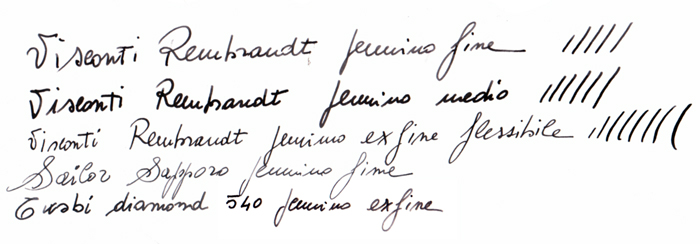 Visconti Rembrandt pennino fine
Visconti Rembrandt pennino medio
Visconti Rembrandt pennino exfine flessibile
Sailor Sapporo pennino fine
Twsbi diamond 540 pennino exfine